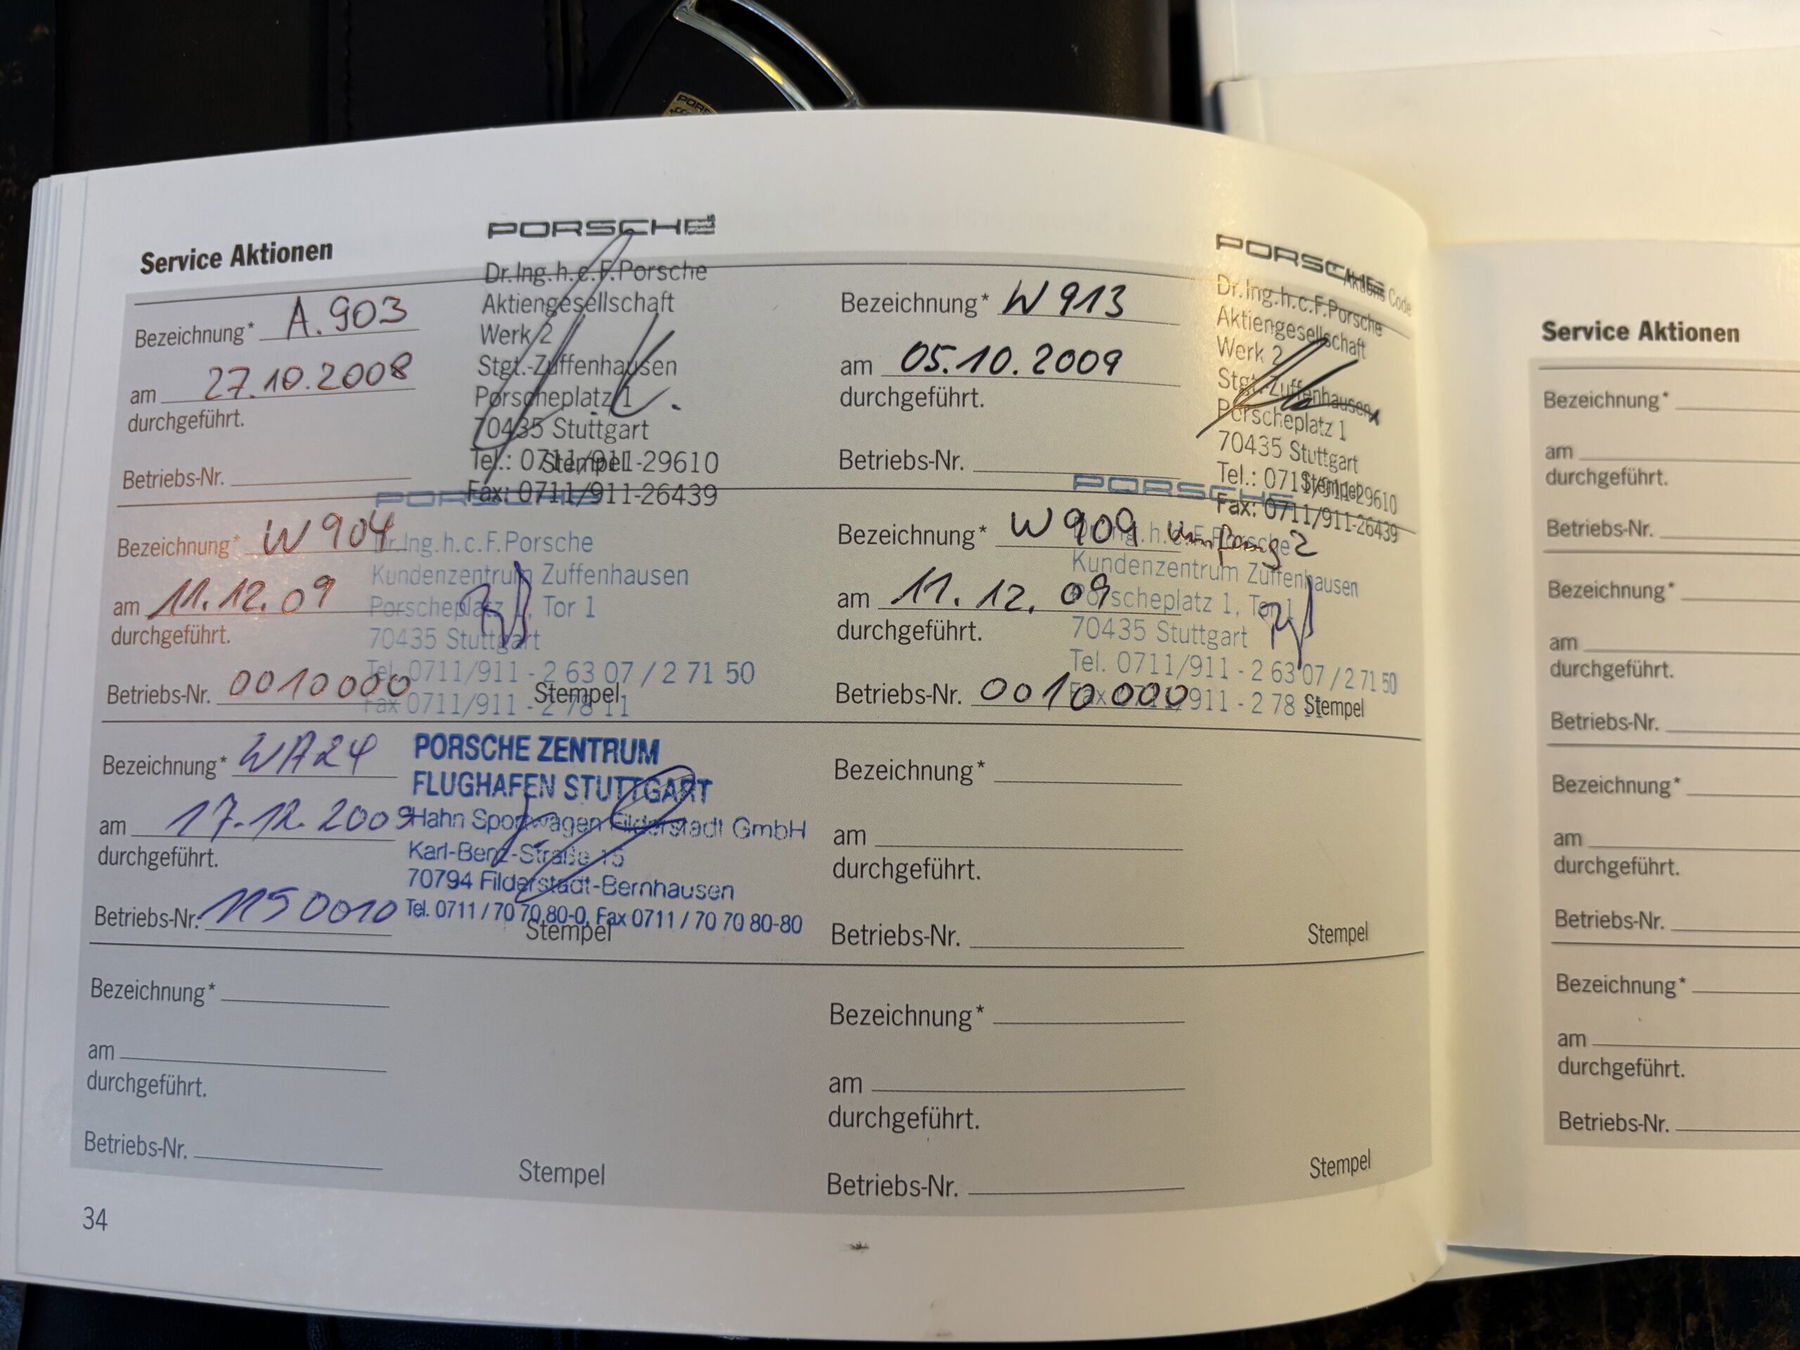 PORSCHE
Service Aktionen
Bezeichnung* A.903
am 27.10.2008
durchgeführt.
Betriebs-Nr.
PORSCHE
Dr.Ing.h.c.F.Porsche
Aktiengesellschaft
Werk 2
Stgt.-Zuffenhausen
Porscheplatz 1
70435 Stuttgart
Tel.: 0711/911-29610
Fax: 0711/911-26439
Stempel
Bezeichnung* W913
am 05.10.2009
durchgeführt.
Betriebs-Nr.
PORSCHE
Code
Dr.Ing.h.c.F.Porsche
Aktiengesellschaft
Werk 2
Stgt.-Zuffenhausen
Porscheplatz 1
70435 Stuttgart
Tel.: 0711/911-29610
Fax: 0711/911-26439
Stempel
Bezeichnung* W904
am 11.12.09
durchgeführt.
Betriebs-Nr. 0010000
PORSCHE
Dr.Ing.h.c.F.Porsche
Kundenzentrum Zuffenhausen
Porscheplatz 1, Tor 1
70435 Stuttgart
Tel. 0711/911 - 2 63 07 / 2 71 50
Fax 0711/911 - 2 78 11
Stempel
Bezeichnung* W909 umfang 2
am 11.12.09
durchgeführt.
Betriebs-Nr. 0010000
Dr.Ing.h.c.F.Porsche
Kundenzentrum Zuffenhausen
Porscheplatz 1, Tor 1
70435 Stuttgart
Tel. 0711/911 - 2 63 07 / 2 71 50
Fax 0711/911 - 2 78 11
Stempel
Bezeichnung* WA24
am 17.12.2009
durchgeführt.
Betriebs-Nr. 1150010
PORSCHE ZENTRUM
FLUGHAFEN STUTTGART
Hahn Sportwagen Filderstadt GmbH
Karl-Benz-Straße 15
70794 Filderstadt-Bernhausen
Tel. 0711 / 70 70 80-0, Fax 0711 / 70 70 80-80
Stempel
Bezeichnung*
am
durchgeführt.
Betriebs-Nr.
Stempel
Bezeichnung*
am
durchgeführt.
Betriebs-Nr.
Stempel
Bezeichnung*
am
durchgeführt.
Betriebs-Nr.
Stempel
34
Service Aktionen
Bezeichnung*
am
durchgeführt.
Betriebs-Nr.
Bezeichnung*
am
durchgeführt.
Betriebs-Nr.
Bezeichnung*
am
durchgeführt.
Betriebs-Nr.
Bezeichnung*
am
durchgeführt.
Betriebs-Nr.